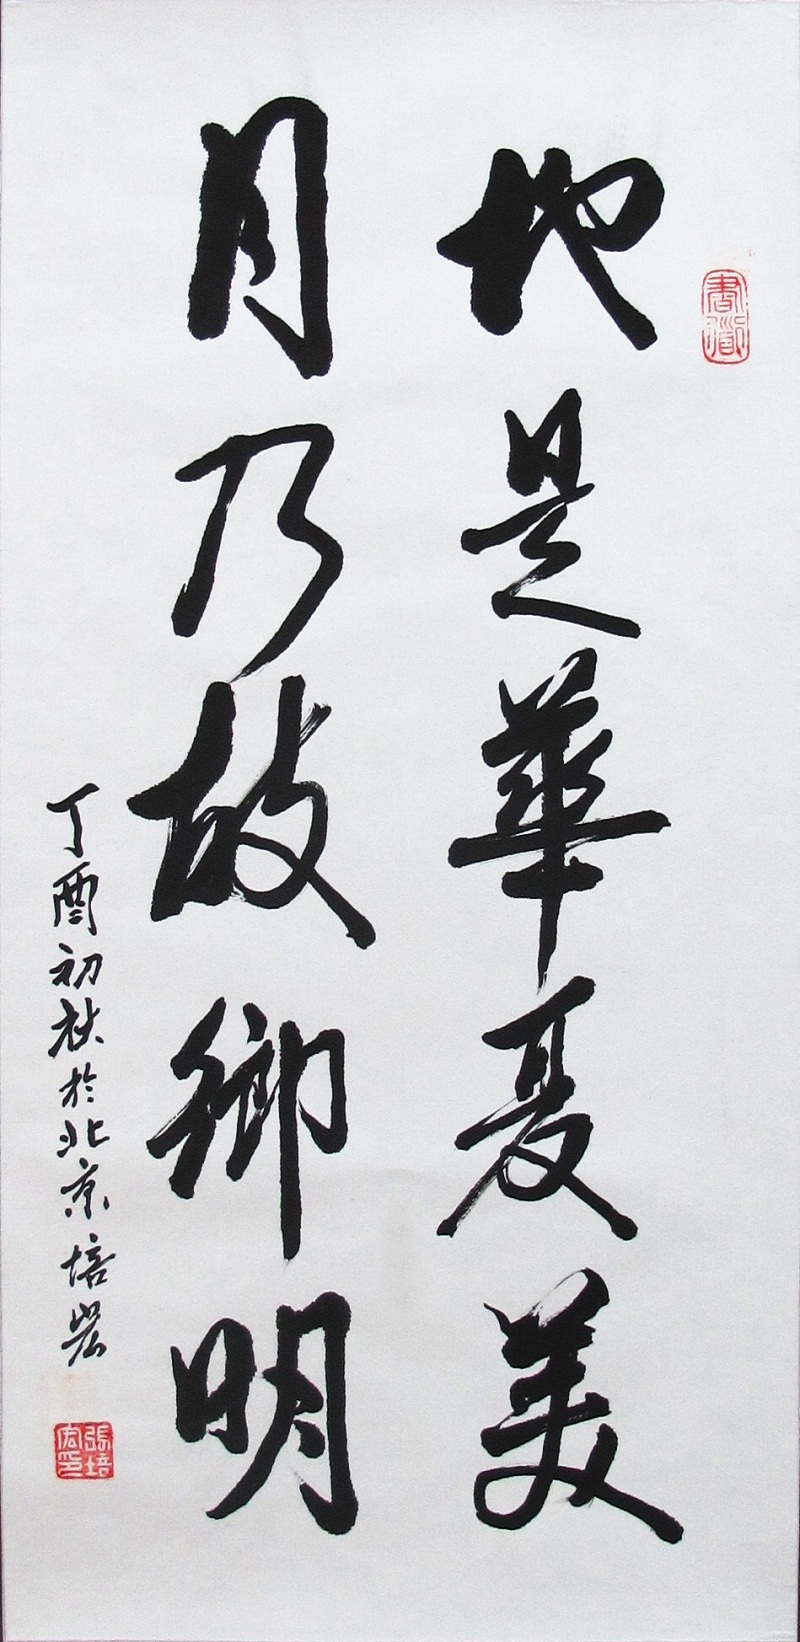 書道
地是華夏美
月乃故鄉明
丁酉初秋於北京培宏
張培宏印